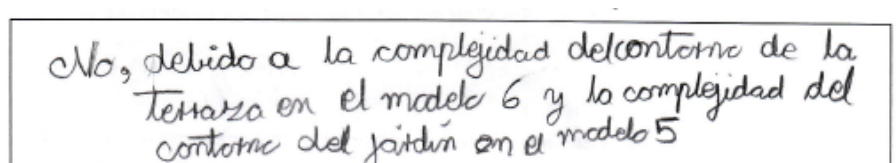 No, debido a la complejidad del contorno de la
terraza en el modelo 6 y la complejidad del
contorno del jardín en el modelo 5